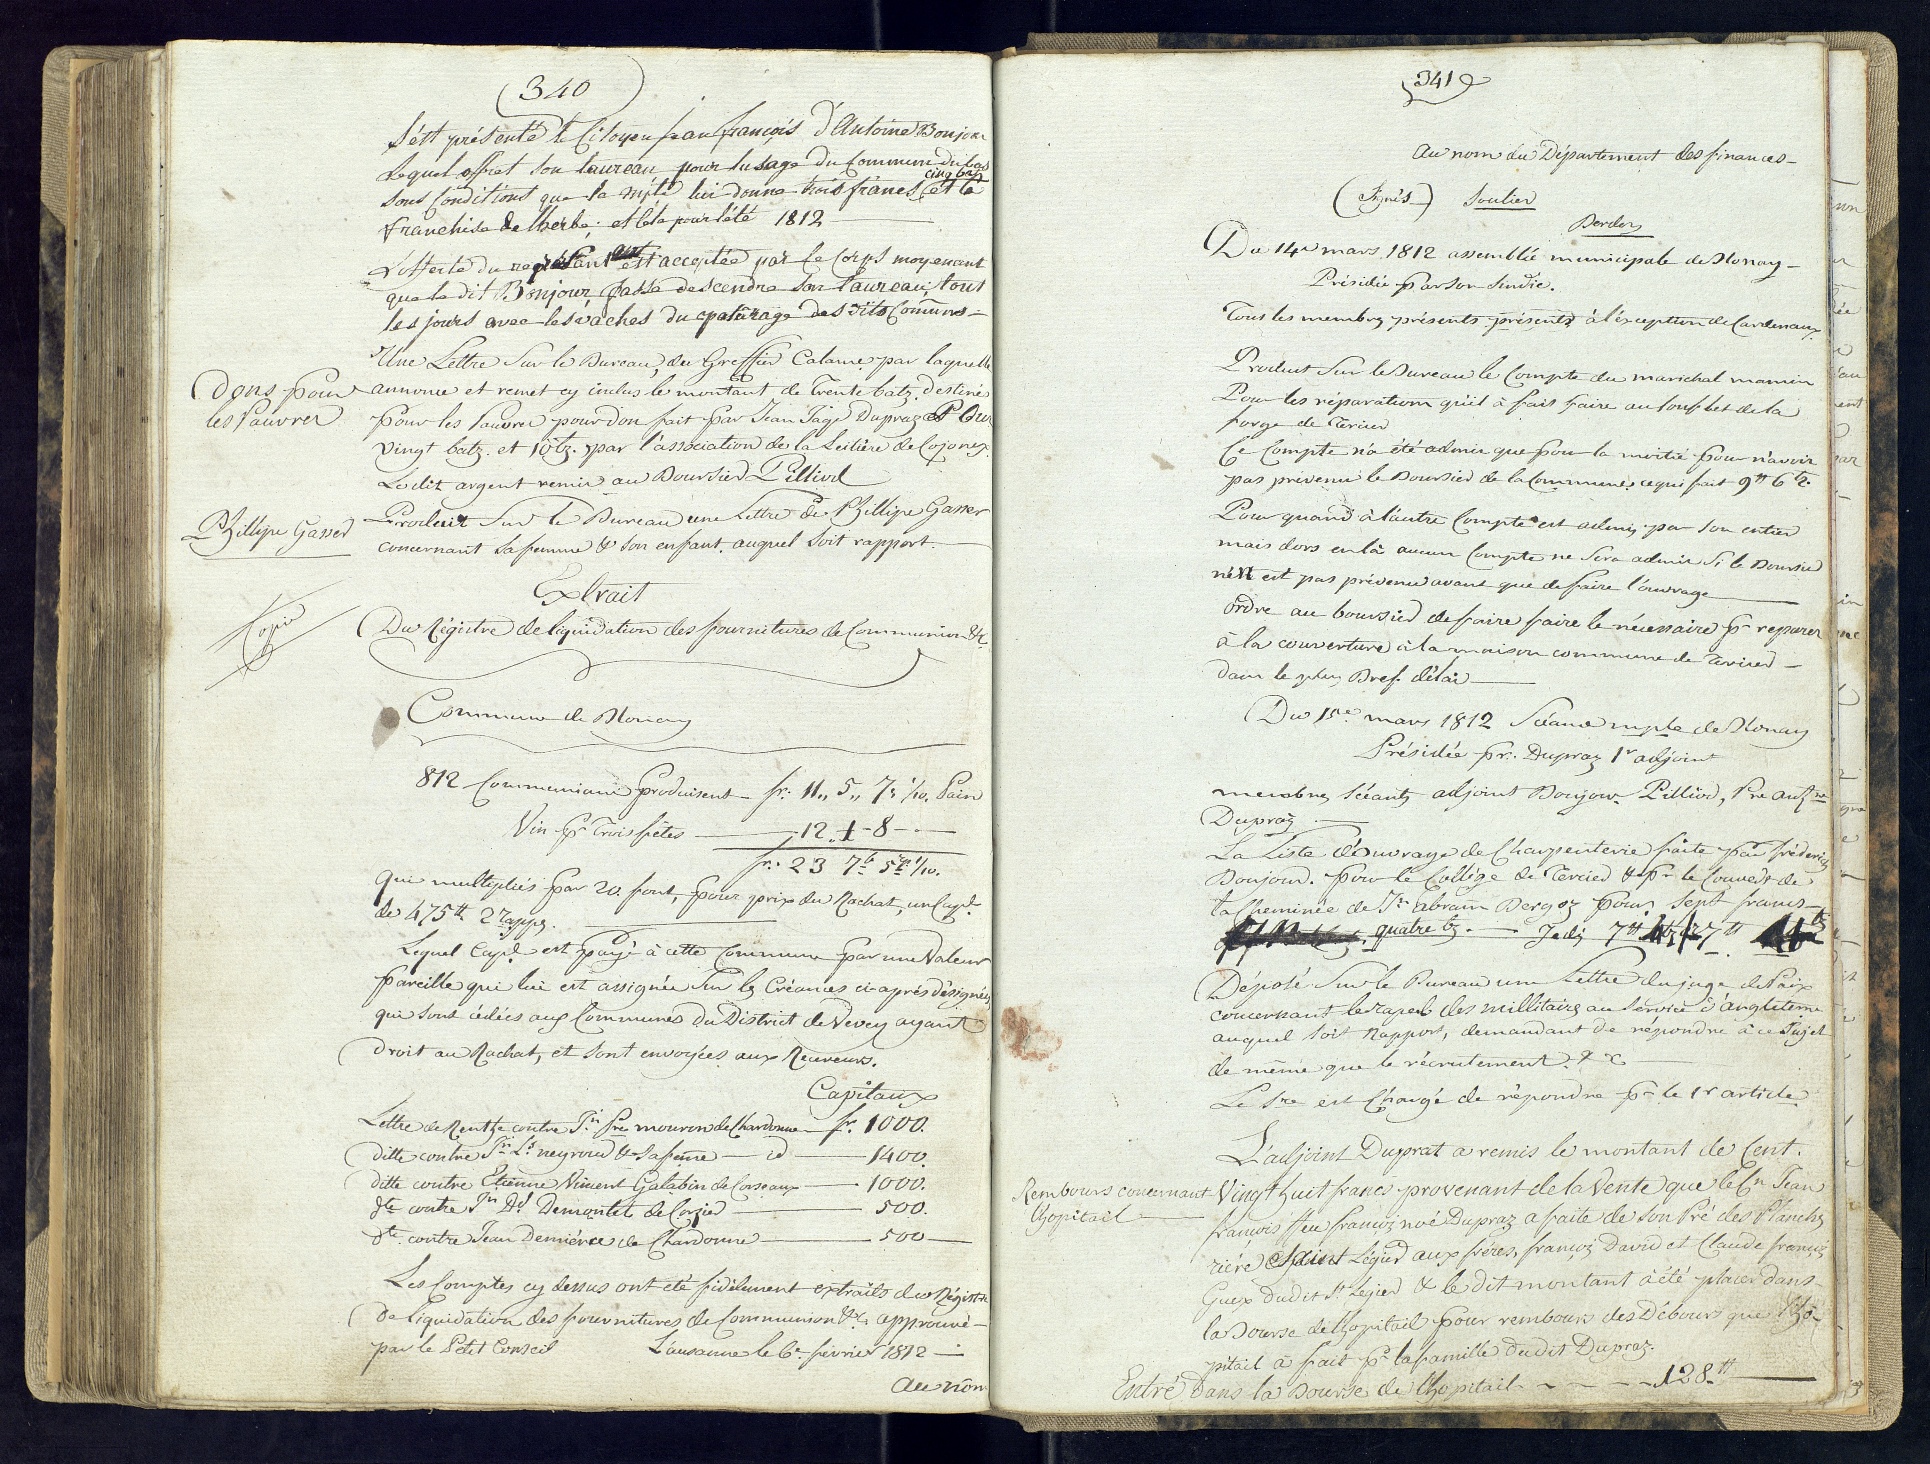 340
s'est présenté le Citoyen jean françois d'Antoine Bonjour
Lequel offret son taureau pour lusage du Commun du bas
cinq btz
sous Conditions que la mplé lui donne trois francs et la
franchise de lherbe; et cela pour lété 1812
L'offerte du représentant est acceptée par le Corps moyenant
que le dit Bonjour fasse descendre son taureau, tout
les jours avec les vaches du paturage des dits Communs
Une Lettre Sur le Bureau, du Greffier Calame par laquelle
Dons pour
les Pauvres
annonce et remet cy inclus le montant de Trente batz. destiné
pour les Pauvres pour don fait par Jean Jaq. Dupraz
vingt batz. et 10 btz. par l'association de la Leitière de Cojonex
Ledit argent remis au Boursier Pilliod
Phillipe Gasser
Produit Sur le Bureau une Lettre de Phillipe Gasser
concernant sa femme & son enfant. auquel soit rapport.
Extrait
Copie
Du Régistre de liquidation des fournitures de Communion &c
Commune de Blonay
812 Communians Produisent fr. 11,, 5,, 7 1/10. Pain
Vin pr Trois fêtes 12. 1 - 8
fr. 23 7b 5 1/10.
qui multipliés par 20. font, pour prix du Rachat, un Capl.
de 475 tt 2 rappes.
Lequel Capl. est Payé à cette Commune par une Valeur
pareille qui lui est assignée Sur les Créances ci après désignées
qui sont cédées aux Communes du District de Vevey ayant
droit au Rachat, et sont envoyées aux Receveurs.
Capitaux
Lettre de Rentze contre Jn. Pre mouron de Chardonne fr. 1000.
ditte contre Jn. Ls. neyroud & sa feme id 1400.
ditte contre Etienne Vincent Galabin de Corseaux 1000.
dte contre Jn Dd Demontet de Corsier 500.
dte. contre Jean Demiéree de Chardonne 500
Les Comptes cy dessus ont été fidélement extraits du Régistre
de liquidation des fournitures de Communion &c. approuvé
par le Petit Conseil Lausanne le 6e. février 1812
au nom
341
au nom du Département des finances
(Signés) Soulier
Perdon
Du 14e mars 1812 assemblée municipale de Blonay
Présidée par son Sindic.
Tous les membres présents présents à l'exception de Cardenaux.
Produit Sur le Bureau le Compte du marichal mamin
Pour les réparations qu'il à fait faire au soufflet de la
forge de Tercier
Ce Compte n'a été admis que pour la moitié pour n'avoir
pas prévenu le Boursier de la Commune, ce qui fait 9 tt 6 btz.
Pour quand à l'autre Compte est admis par son entier
mais dors en la aucun Compte ne sera admis si le Boursier
n'en est pas prévenu avant que de faire l'ouvrage
ordre au boursier de faire faire le nécessaire pr reparer
à la couverture à la maison commune de Tercier
dans le plus Bref. délai
Du 15e. mars 1812 Séance mple de Blonay
Présidée pr. Dupraz 1r adjoint
membres séants adjoint Bonjour Pilliod, Pre anthne
Dupraz
La Liste d'ouvrage de Charpenterie faite par fréderich
Bonjour. pour le Collége de Tercier & pr le Couvert de
la Cheminée de Jn abram Dergoz pour Sept francs
quatre bz. Je dis 7 tt 7 tt btz
Déposé Sur le Bureau une Lettre du juge de Paix
concernant le rapel des millitaires au service d'angleterre
auquel soit Rapport, demandant de répondre à ce Sujet
de même que le récrutement &c
Le Sre est Chargé de répondre pr le 1r article
L'adjoint Duprat a remis le montant de Cent.
Rembours concernant
lhopitail
Vingt huit francs provenant de la Vente que le Cn Jean
françois ffeu françois noé Dupraz a faite de son Pré des Planches
rière Saint Légier aux fréres, françois David et Claude françois
Guex dudit St Légier & le dit montant à été placer dans
la Bourse de lhopitail pour rembours des Débours que lho-
pitail à fait pr la famille dudit Dupraz.
Entré dans la Bourse de lhopitail 128. tt